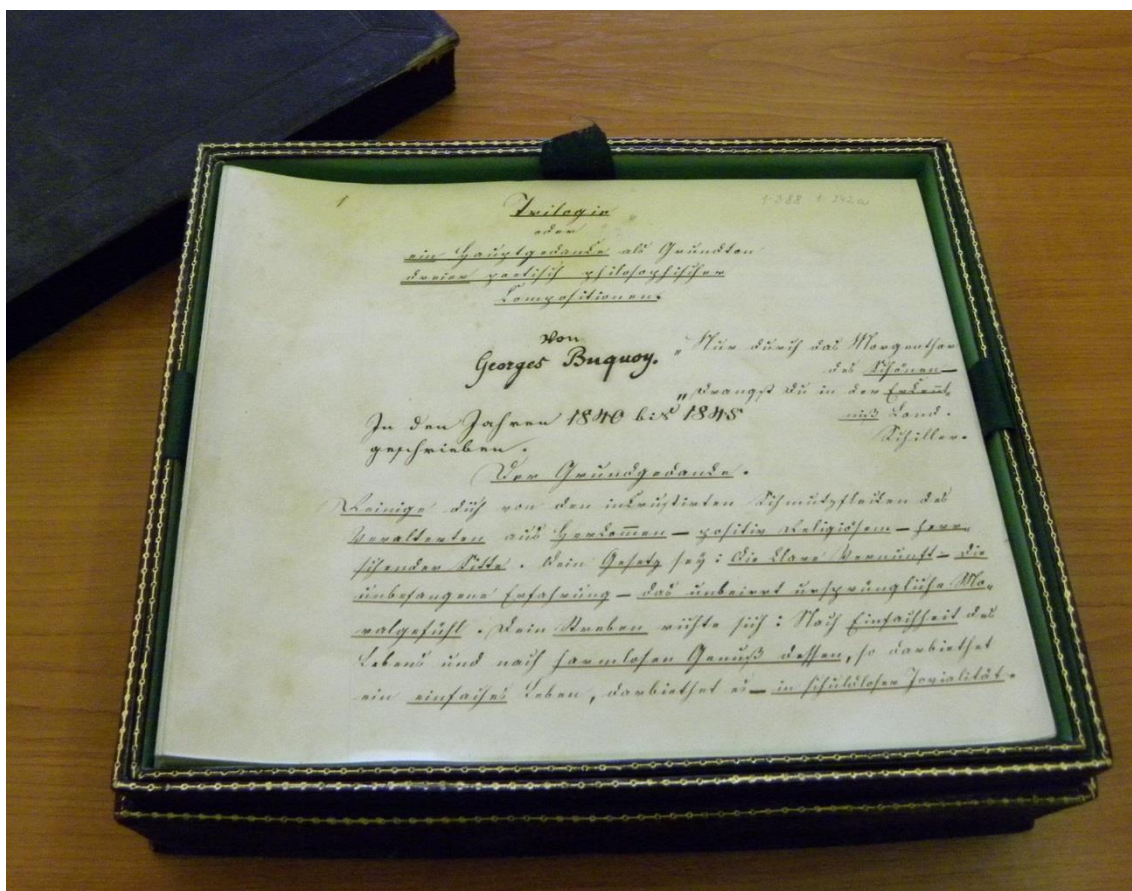 1
1-388 1-342a
Trilogie
oder
ein Hauptgedanke als Grundton
dreier poetisch philosophischer
Compositionen.
von
Georges Buquoy.
„Nur durch das Morgenthor
des Schönen—
„drangst Du in der Erkennt,
niß Land.
Schiller.
In den Jahren 1840 bis 1845
geschrieben.
Der Grundgedanke.
Reinige dich von den inkrustirten Schmutzflecken des
Veralteten aus Herkom̅en — positiv Religiösem — herr-
schender Sitte. Dein Gesetz sey: die klare Vernunft — die
unbefangene Erfahrung — das unbeirrt ursprüngliche Mo-
ralgefühl. Dein Streben richte sich: Nach Einfachheit des
Lebens und nach harmlosen Genuß dessen, so darbiethet
ein einfaches Leben, darbiethet es — in schuldloser Jovialität.